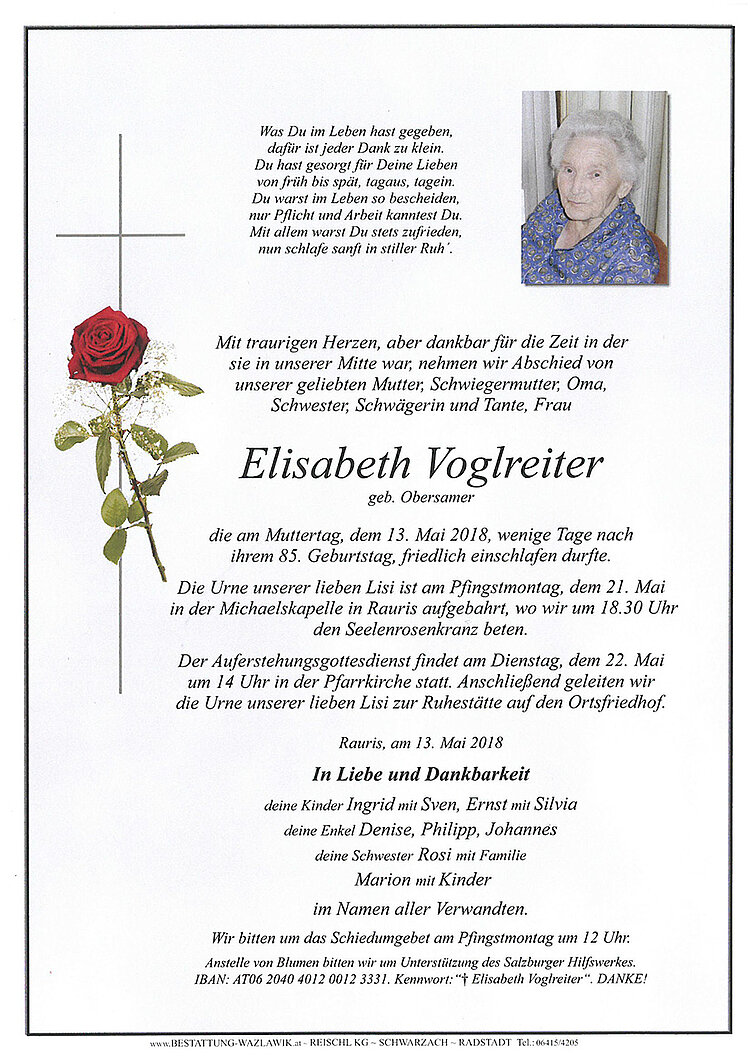 Was Du im Leben hast gegeben,
dafür ist jeder Dank zu klein.
Du hast gesorgt für Deine Lieben
von früh bis spät, tagaus, tagein.
Du warst im Leben so bescheiden,
nur Pflicht und Arbeit kanntest Du.
Mit allem warst Du stets zufrieden,
nun schlafe sanft in stiller Ruh´.
Mit traurigen Herzen, aber dankbar für die Zeit in der
sie in unserer Mitte war, nehmen wir Abschied von
unserer geliebten Mutter, Schwiegermutter, Oma,
Schwester, Schwägerin und Tante, Frau
Elisabeth Voglreiter
geb. Obersamer
die am Muttertag, dem 13. Mai 2018, wenige Tage nach
ihrem 85. Geburtstag, friedlich einschlafen durfte.
Die Urne unserer lieben Lisi ist am Pfingstmontag, dem 21. Mai
in der Michaelskapelle in Rauris aufgebahrt, wo wir um 18.30 Uhr
den Seelenrosenkranz beten.
Der Auferstehungsgottesdienst findet am Dienstag, dem 22. Mai
um 14 Uhr in der Pfarrkirche statt. Anschließend geleiten wir
die Urne unserer lieben Lisi zur Ruhestätte auf den Ortsfriedhof.
Rauris, am 13. Mai 2018
In Liebe und Dankbarkeit
deine Kinder Ingrid mit Sven, Ernst mit Silvia
deine Enkel Denise, Philipp, Johannes
deine Schwester Rosi mit Familie
Marion mit Kinder
im Namen aller Verwandten.
Wir bitten um das Schiedumgebet am Pfingstmontag um 12 Uhr.
Anstelle von Blumen bitten wir um Unterstützung des Salzburger Hilfswerkes.
IBAN: AT06 2040 4012 0012 3331. Kennwort: “† Elisabeth Voglreiter“. DANKE!
www.BESTATTUNG-WAZLAWIK.at ~ REISCHL KG ~ SCHWARZACH ~ RADSTADT Tel.: 06415/4205